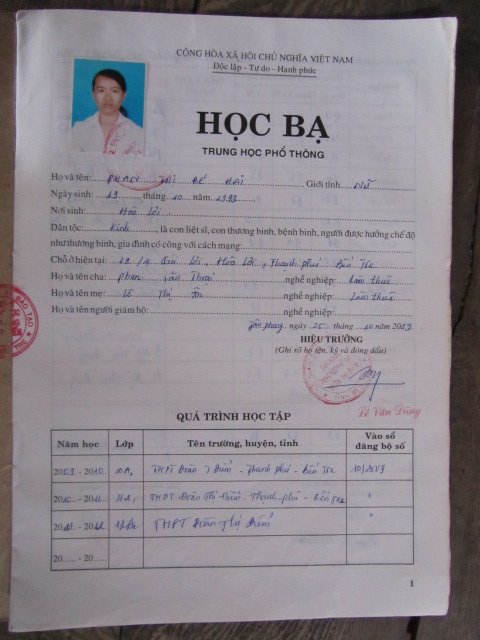 CỘNG HÒA XÃ HỘI CHỦ NGHĨA VIỆT NAM
Độc lập - Tự do - Hạnh phúc
HỌC BẠ
TRUNG HỌC PHỔ THÔNG
Họ và tên: PHAN THỊ BÉ HAI Giới tính Nữ
Ngày sinh: 19 tháng 10 năm 1993
Nơi sinh: Hòa Lợi
Dân tộc: Kinh, là con liệt sĩ, con thương binh, bệnh binh, người được hưởng chế độ
như thương binh, gia đình có công với cách mạng:
Chỗ ở hiện tại: Hòa Lợi, Thạnh phú Bến Tre
Họ và tên cha: Phan Văn nghề nghiệp: Làm thuê
Họ và tên mẹ: Lê Thị nghề nghiệp: Làm thuê
Họ và tên người giám hộ: nghề nghiệp:
ngày 25 tháng 10 năm 2009
HIỆU TRƯỞNG
(Ghi rõ họ tên, ký và đóng dấu)
Lê Văn Dũng
QUÁ TRÌNH HỌC TẬP
Năm học Lớp Tên trường, huyện, tỉnh Vào sổ đăng bộ số
2009 - 2010 THPT Đoàn Thị Điểm - Thạnh phú - Bến Tre
2010 - 2011 THPT Đoàn Thị Điểm - Thạnh phú - Bến Tre "
2011 - 2012 THPT Đoàn Thị Điểm "
20...... - 20......
1